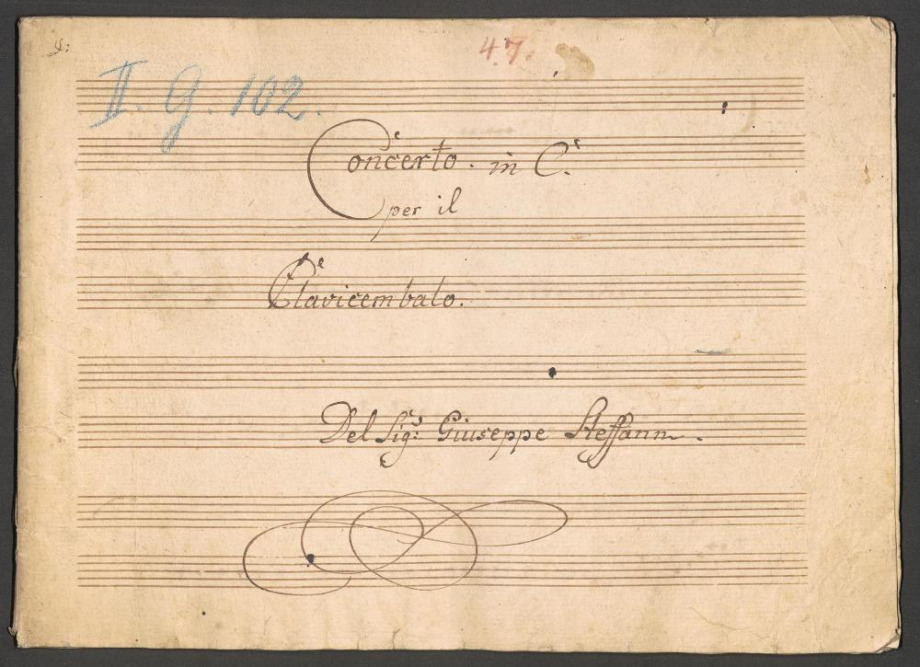 47.
II. G. 102.
Concerto. in C.
per il
Clavicembalo.
Del Sig: Giuseppe Steffann.